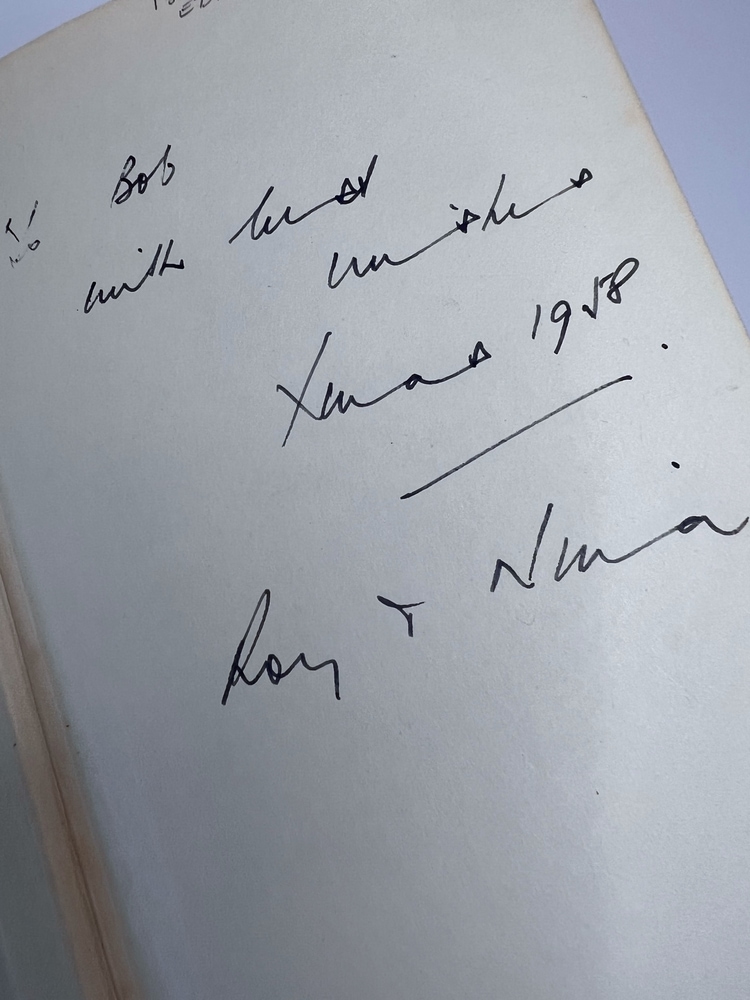 Bob
with best wishes
Xmas 1958.
Roy & Nina